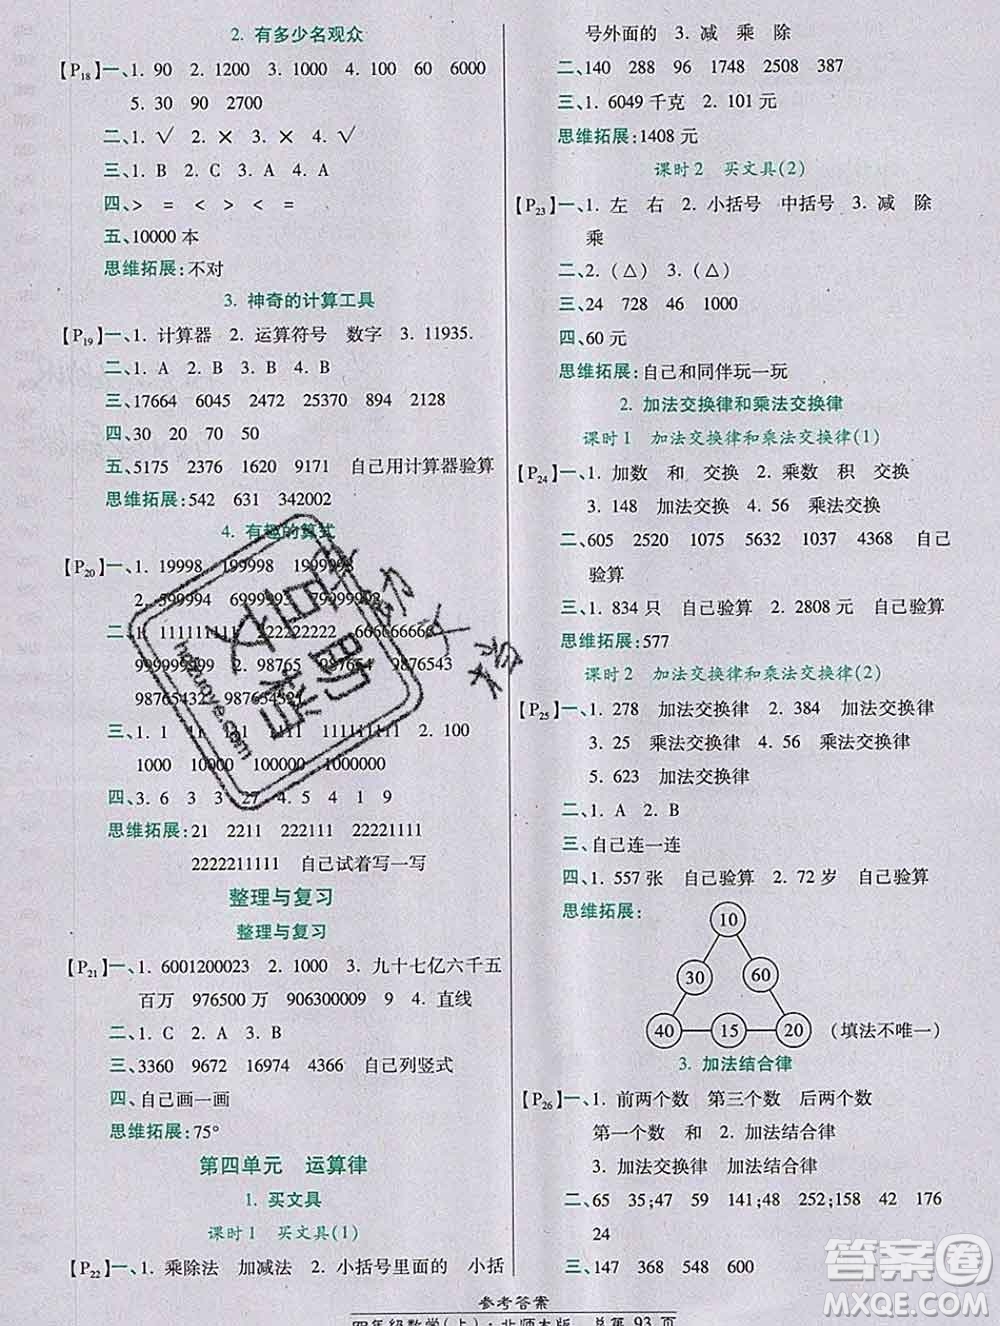 2. 有多少名观众
【P18】一、1. 90 2. 1200 3. 1000 4. 100 60 6000
5. 30 90 2700
二、1. √ 2. × 3. × 4. √
三、1. C 2. B 3. A 4. C
四、> = < < =
五、10000 本
思维拓展:不对
3. 神奇的计算工具
【P19】一、1. 计算器 2. 运算符号 数字 3. 11935.
二、1. A 2. B 3. B
三、17664 6045 2472 25370 894 2128
四、20 30 70 50
五、5175 2376 1620 9171 自己用计算器验算
思维拓展:542 631 342002
4. 有趣的算式
【P20】一、1. 19998 199998 1999998
2. 599994 6999993 79999992
二、1. 111111111 222222222 666666666
999999999 2. 98765 987654
98765432 987654321
三、1. 1 11 111 1111 11111111 2. 100
1000 10000 100000 1000000
四、3. 6 3 3 27 4. 5 4 1 9
思维拓展:21 2211 222111 22221111
2222211111 自己试着写一写
整理与复习
整理与复习
【P21】一、1. 6001200023 2. 1000 3. 九十七亿六千五
百万 976500 万 906300009 9 4. 直线
二、1. C 2. A 3. B
三、3360 9672 16974 4444 自己列竖式
四、自己画一画
思维拓展:75°
第四单元 运算律
1. 买文具
课时1 买文具(1)
【P22】一、1. 乘除法 加减法 2. 小括号里面的 小括
号外面的 3. 减 乘 除
二、140 288 96 1748 2508 387
三、1. 6049 千克 2. 101 元
思维拓展:1408 元
课时2 买文具(2)
【P23】一、1. 左 右 2. 小括号 中括号 3. 减 除
乘
二、2. (△) 3. (△)
三、24 728 46 1000
四、60 元
思维拓展:自己和同伴玩一玩
2. 加法交换律和乘法交换律
课时1 加法交换律和乘法交换律(1)
【P24】一、1. 加数 和 交换 2. 乘数 积 交换
3. 148 加法交换 4. 56 乘法交换
二、605 2520 1075 5632 1037 4368 自己
验算
三、1. 834 只 自己验算 2. 2808 元 自己验算
思维拓展:577
课时2 加法交换律和乘法交换律(2)
【P25】一、1. 278 加法交换律 2. 384 加法交换律
3. 25 乘法交换律 4. 56 乘法交换律
5. 623 加法交换律
二、1. A 2. B
三、自己连一连
四、1. 557 张 自己验算 2. 72 岁 自己验算
思维拓展:
10
30 60
40 15 20 (填法不唯一)
3. 加法结合律
【P26】一、1. 前两个数 第三个数 后两个数
第一个数 和 2. 加法结合律
3. 加法交换律 加法结合律
二、65 35;47 59 141 59;158 42 176
24
三、147 368 548 600
参考答案
四年级数学(上)·北师大版 总第 93 页
百助文档
hezuoye.com
答案圈
MXQE.COM